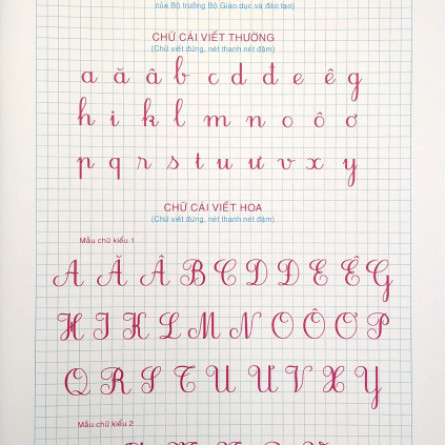 của Bộ trưởng Bộ Giáo dục và đào tạo)
CHỮ CÁI VIẾT THƯỜNG
(Chữ viết đứng, nét thanh nét đậm)
a ă â b c d đ e ê g
h i k l m n o ô ơ
p q r s t u ư v x y
CHỮ CÁI VIẾT HOA
(Chữ viết đứng, nét thanh nét đậm)
Mẫu chữ kiểu 1
A Ă Â B C D Đ E Ê G
H I K L M N O Ô Ơ P
Q R S T U Ư V X Y
Mẫu chữ kiểu 2